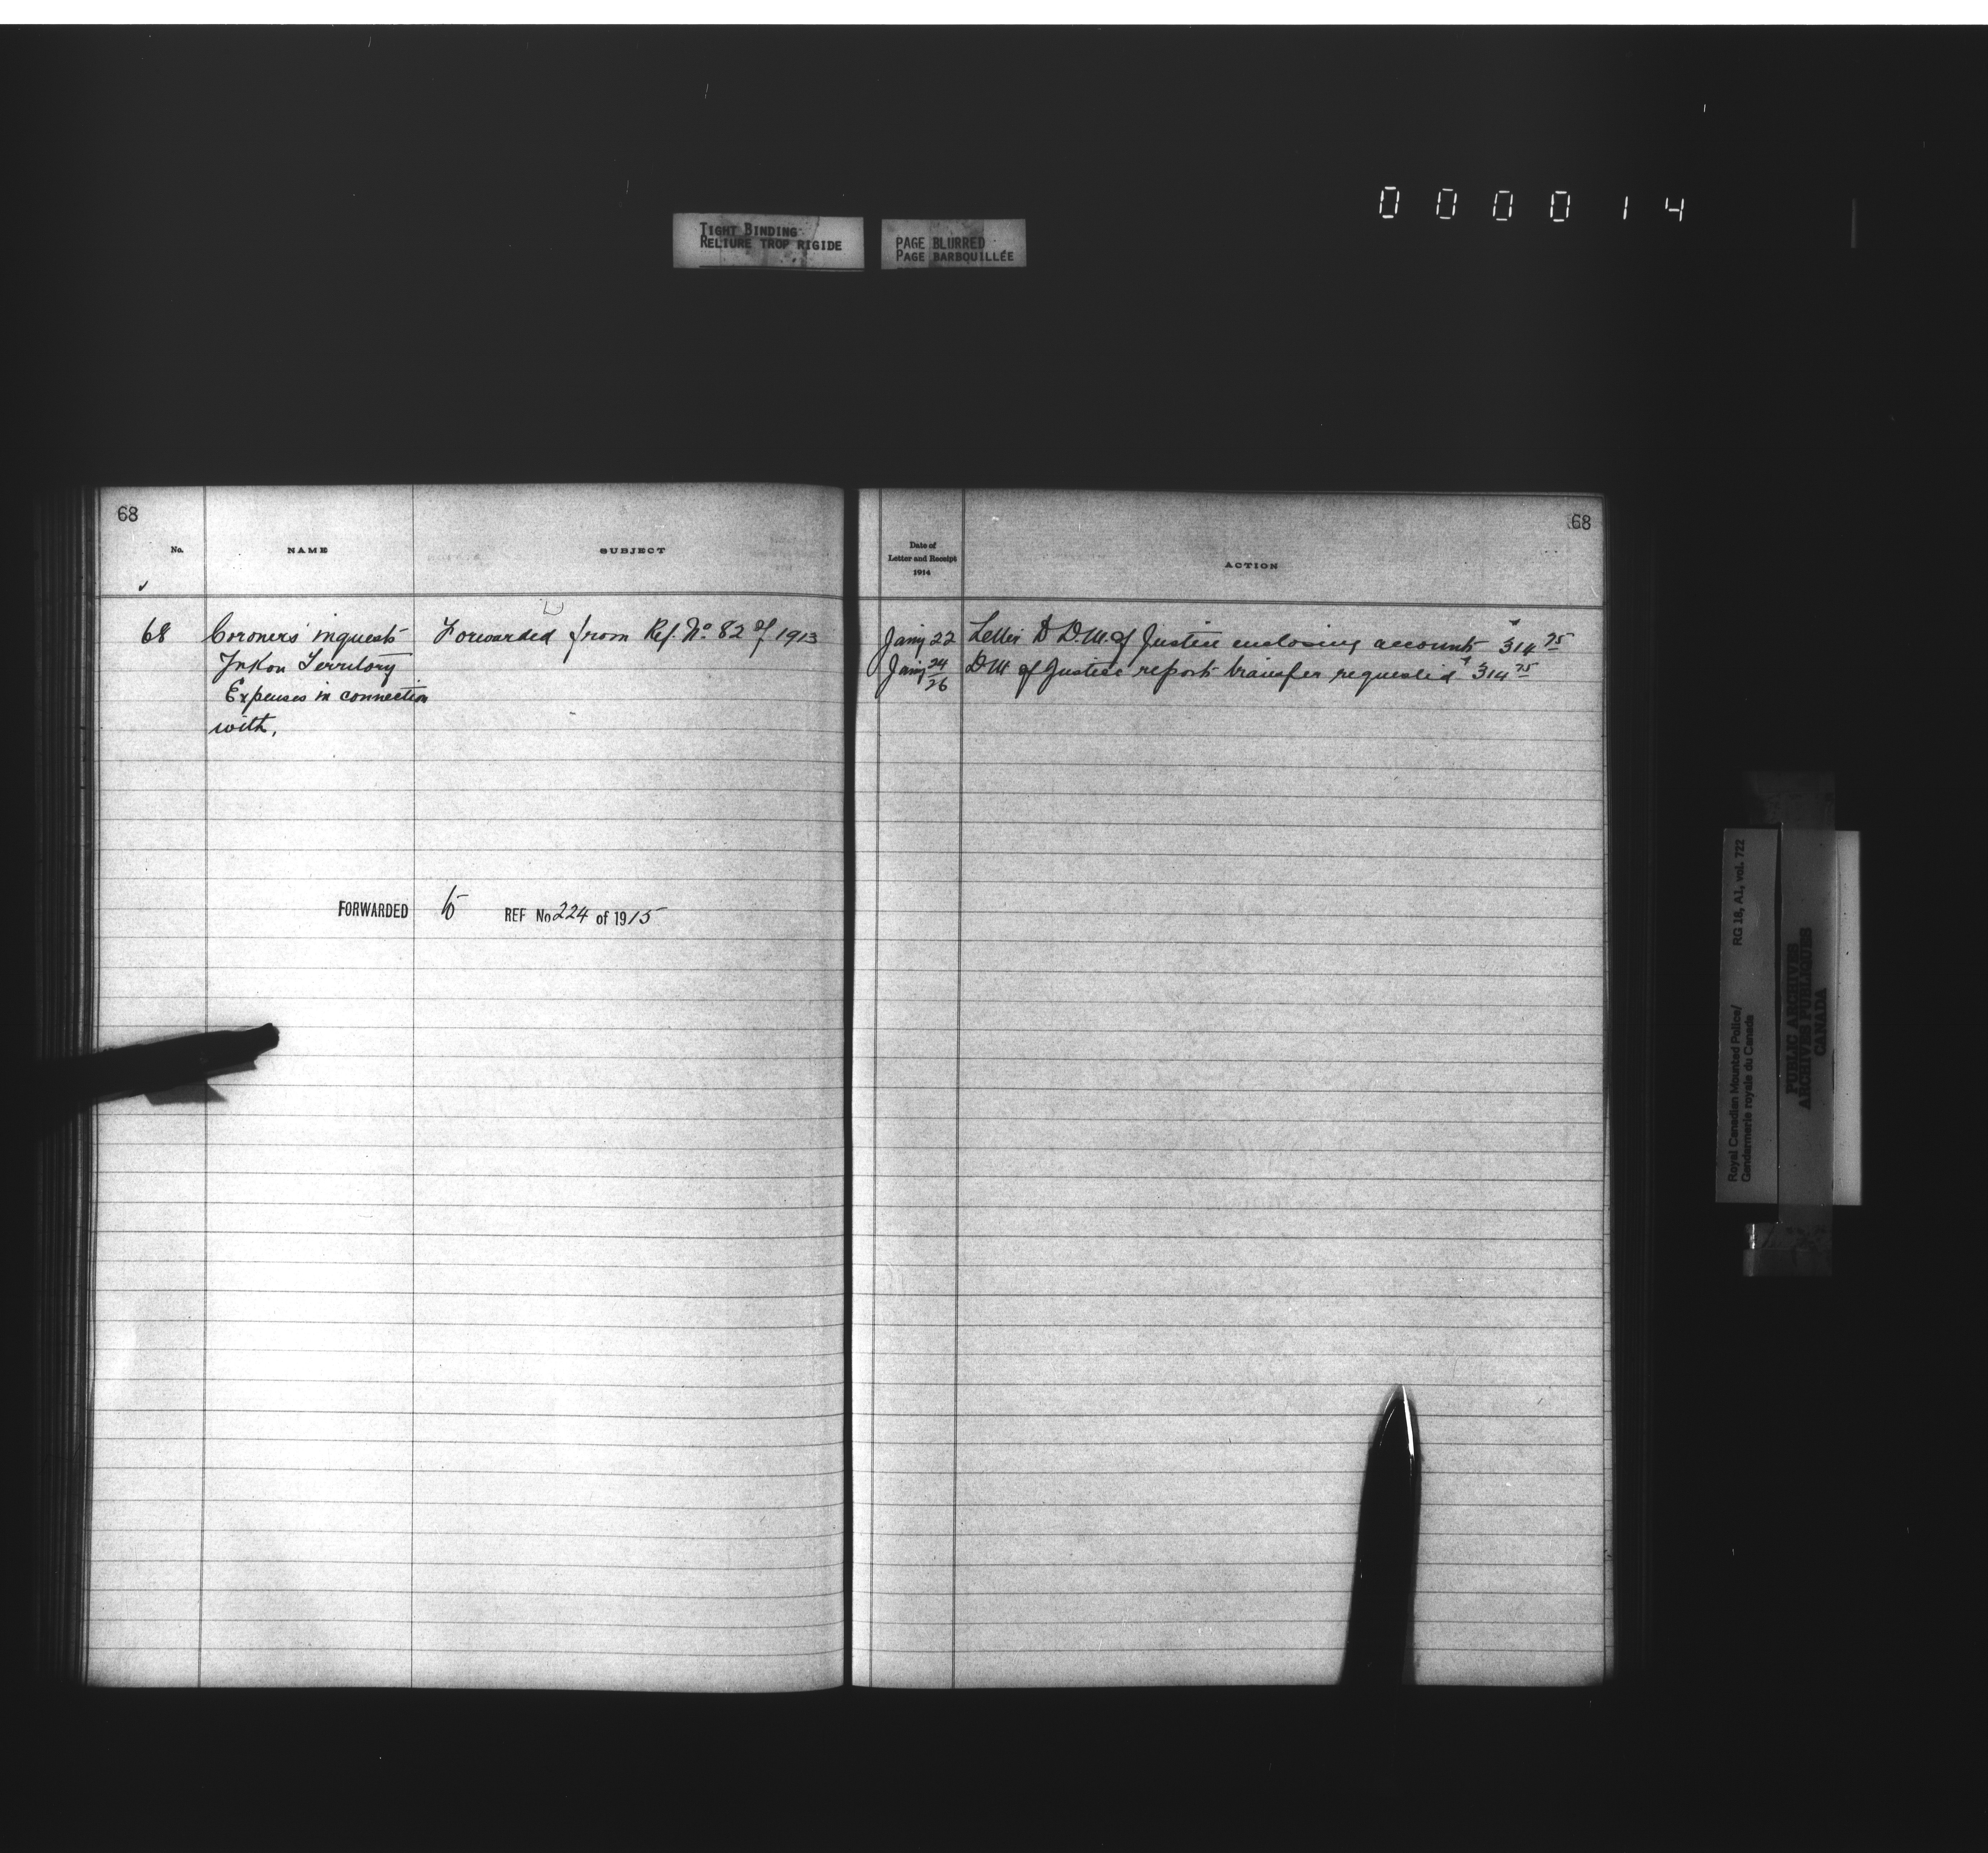 000014
TIGHT BINDING
RELIURE TROP RIGIDE
PAGE BLURRED
PAGE BARBOUILLÉE
68
No.
NAME
SUBJECT
68 Coroners inquests Forwarded from Ref. No. 82 of 1913
Yukon Territory
Expenses in connection
with,
FORWARDED to REF No 224 of 1915
68
Date of
Letter and Receipt
1914
ACTION
Jany 22 Letter to D.M. of Justice enclosing accounts $314 75
Jany 24/26 D M of Justice report transfer requested $314 75
Royal Canadian Mounted Police/ RG 18, A1, vol. 722
Gendarmerie royale du Canada
PUBLIC ARCHIVES
ARCHIVES PUBLIQUES
CANADA